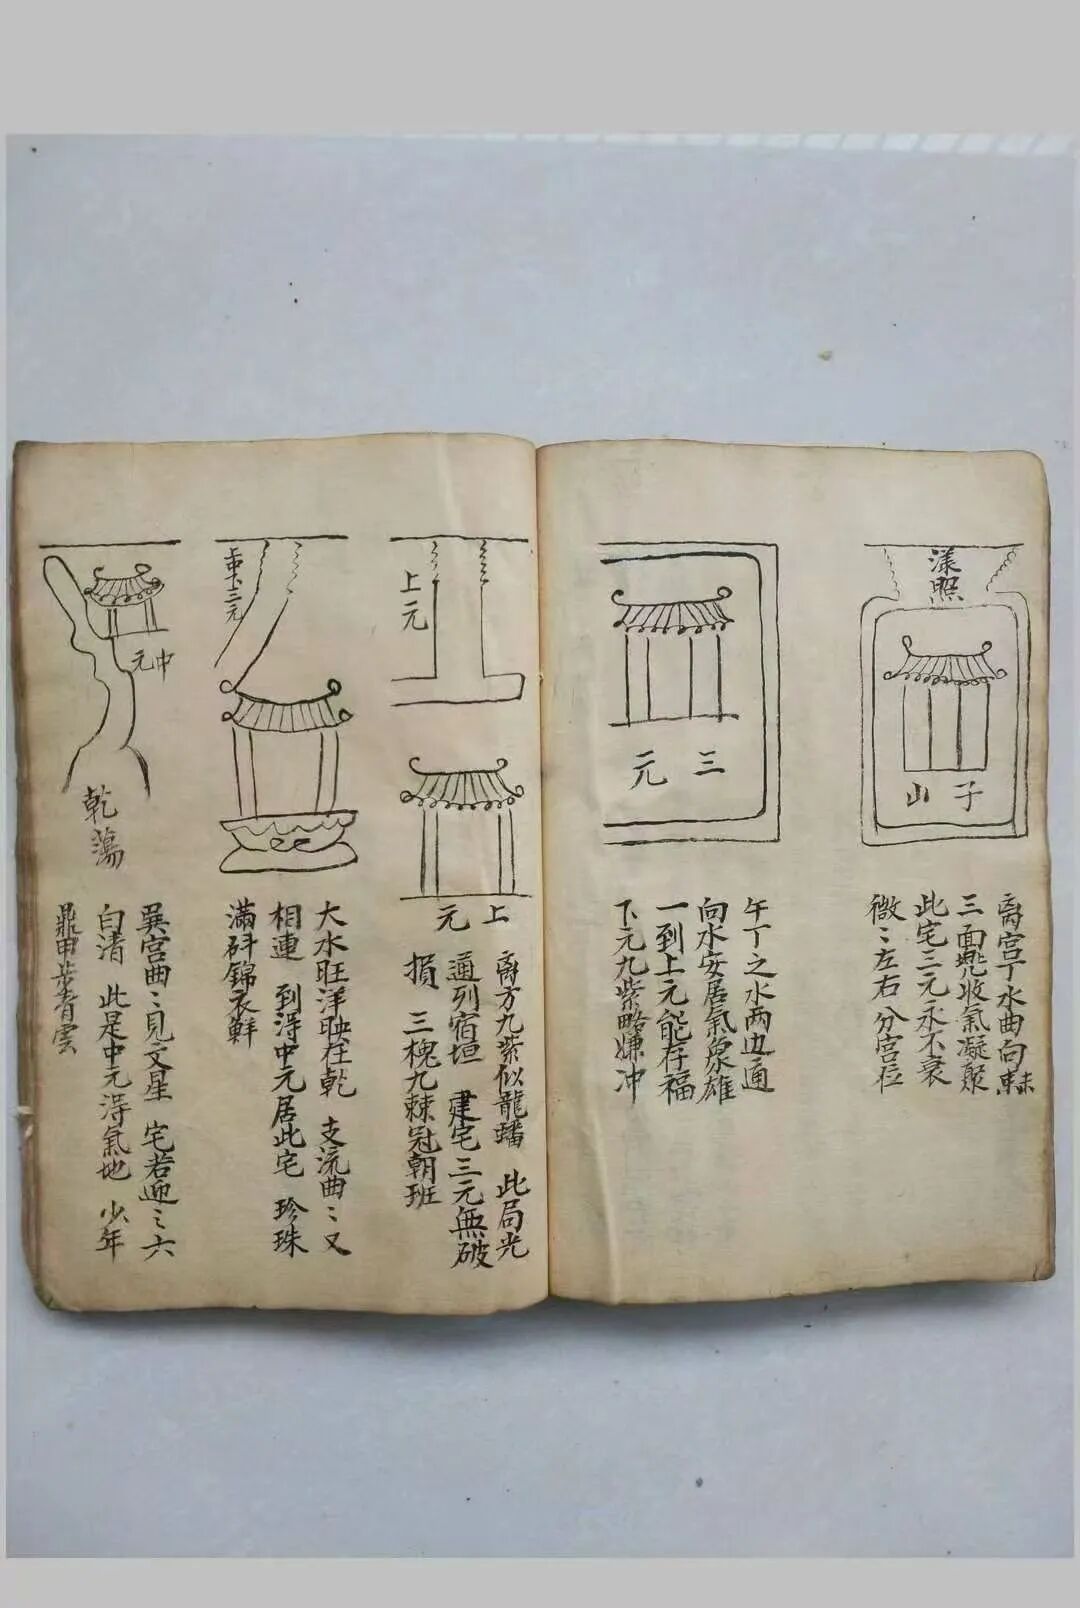 漾照
子山
离宫丁水曲向
三面兜收氣凝聚
此宅三元永不衰
微〻左右分宫位
三元
午丁之水两边通
向水安居氣象雄
一到上元能存福
下元九紫略嫌冲
上元
上元
离方九紫似龍蟠 此局光
通列宿垣 建宅三元無破
損 三槐九棘冠朝班
上中下三元
大水旺洋映在乾 支流曲〻又
相連 到得中元居此宅 珍珠
滿斗錦衣鮮
中元
乾蕩
巽宫曲〻見文星 宅若迎〻六
白清 此是中元得氣地 少年
鼎甲步青雲